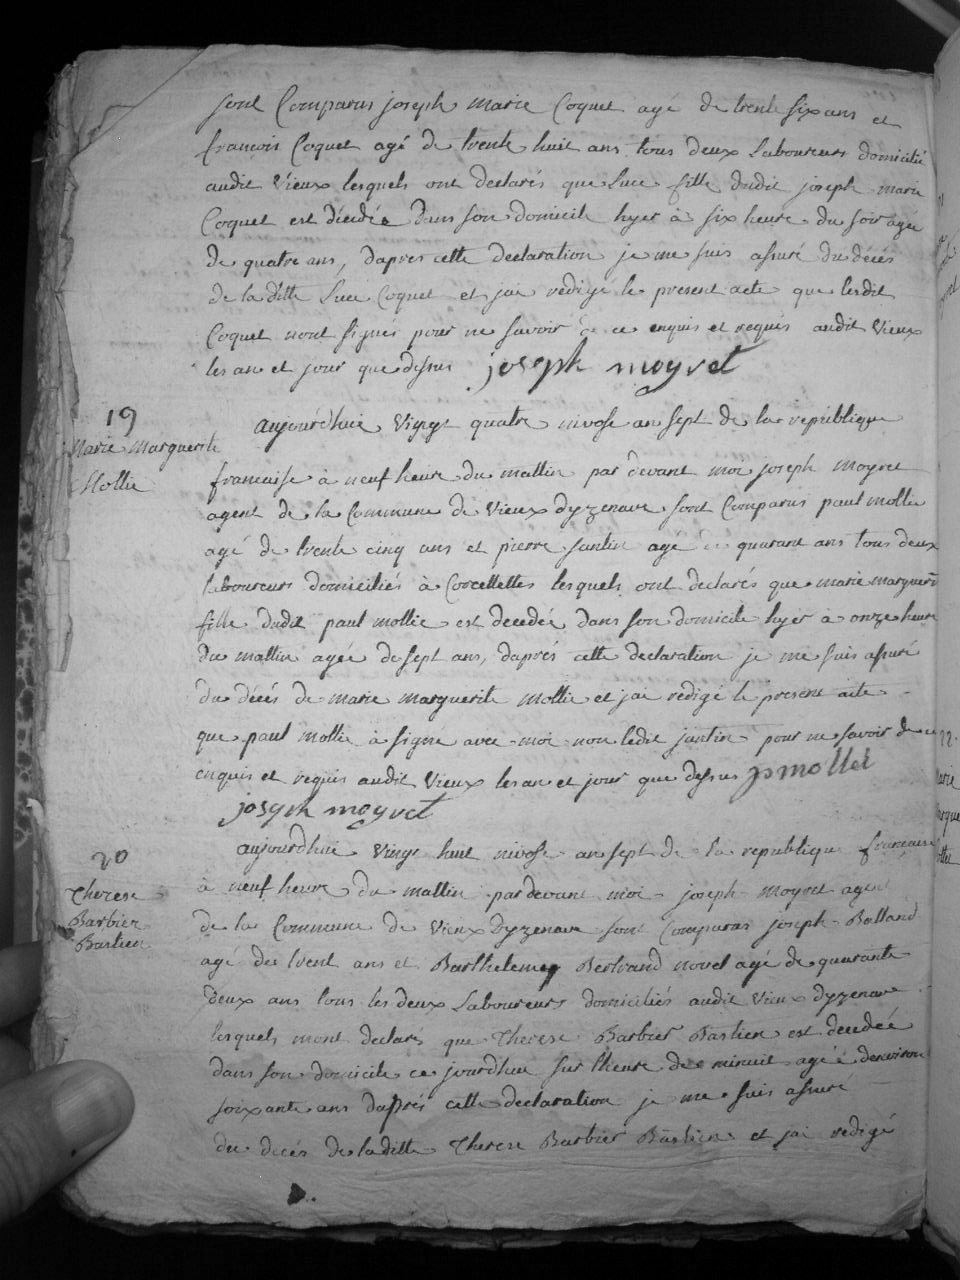 sont Comparus joseph marie Coquet agé de trente six ans et
françois Coquet agé de trente huit ans tous deux Laboureurs domicilié
audit Vieux lesquels ont declarés que Luce fille dudit joseph marie
Coquet est décedée dans son domicile hyer à six heure du soir agé
de quatre ans, dapres cette declaration je me suis assuré du décés
de la ditte Luce Coquet et jai redigé le present acte que lesdit
Coquet nont signés pour ne savoir de ce enquis et requis audit Vieux
les an et jour que dessus joseph moyret
19
Marie Marguerite
Mollie
aujourdhui Vingt quatre nivose an sept de la republique
francaise à neuf heure du mattin par devant moi joseph moyret
agent de la Commune de Vieux dyzenave sont Comparus paul mollie
agé de trente cinq ans et pierre jantin agé de quarant ans tous deux
laboureurs domiciliés à Corcellettes lesquels ont declarés que marie marguerite
fille dudit paul mollie est decedée dans son domicile hyer à onze heure
du mattin agée de sept ans, daprés cette declaration je me suis assuré
du décés de marie marguerite mollie et jai redigé le present acte
que paul mollie à signe avec moi non ledit jantin pour ne savoir de ce
enquis et requis audit Vieux les an et jour que dessus p mollet
joseph moyret
20
Therese
Barbier
Bastien
aujourdhui Vingt huit nivose an sept de la republique francaise
à neuf heure du mattin pardevant moi joseph moyret agent
de la Commune de Vieux Dyzenave sont Comparus joseph Balland
agé de trent ans et Barthelemey Bertrand novel agé de quarante
deux ans tous les deux Laboureurs domiciliés audit Vieux dyzenave
lesquels mont declarés que Therese Barbier Bastien est decedée
dans son domicile ce jourdhui sur lheure de minuit agé denviron
soixante ans daprés cette declaration je me suis assuré
du decés de laditte Therese Barbier Bastien et jai redigé